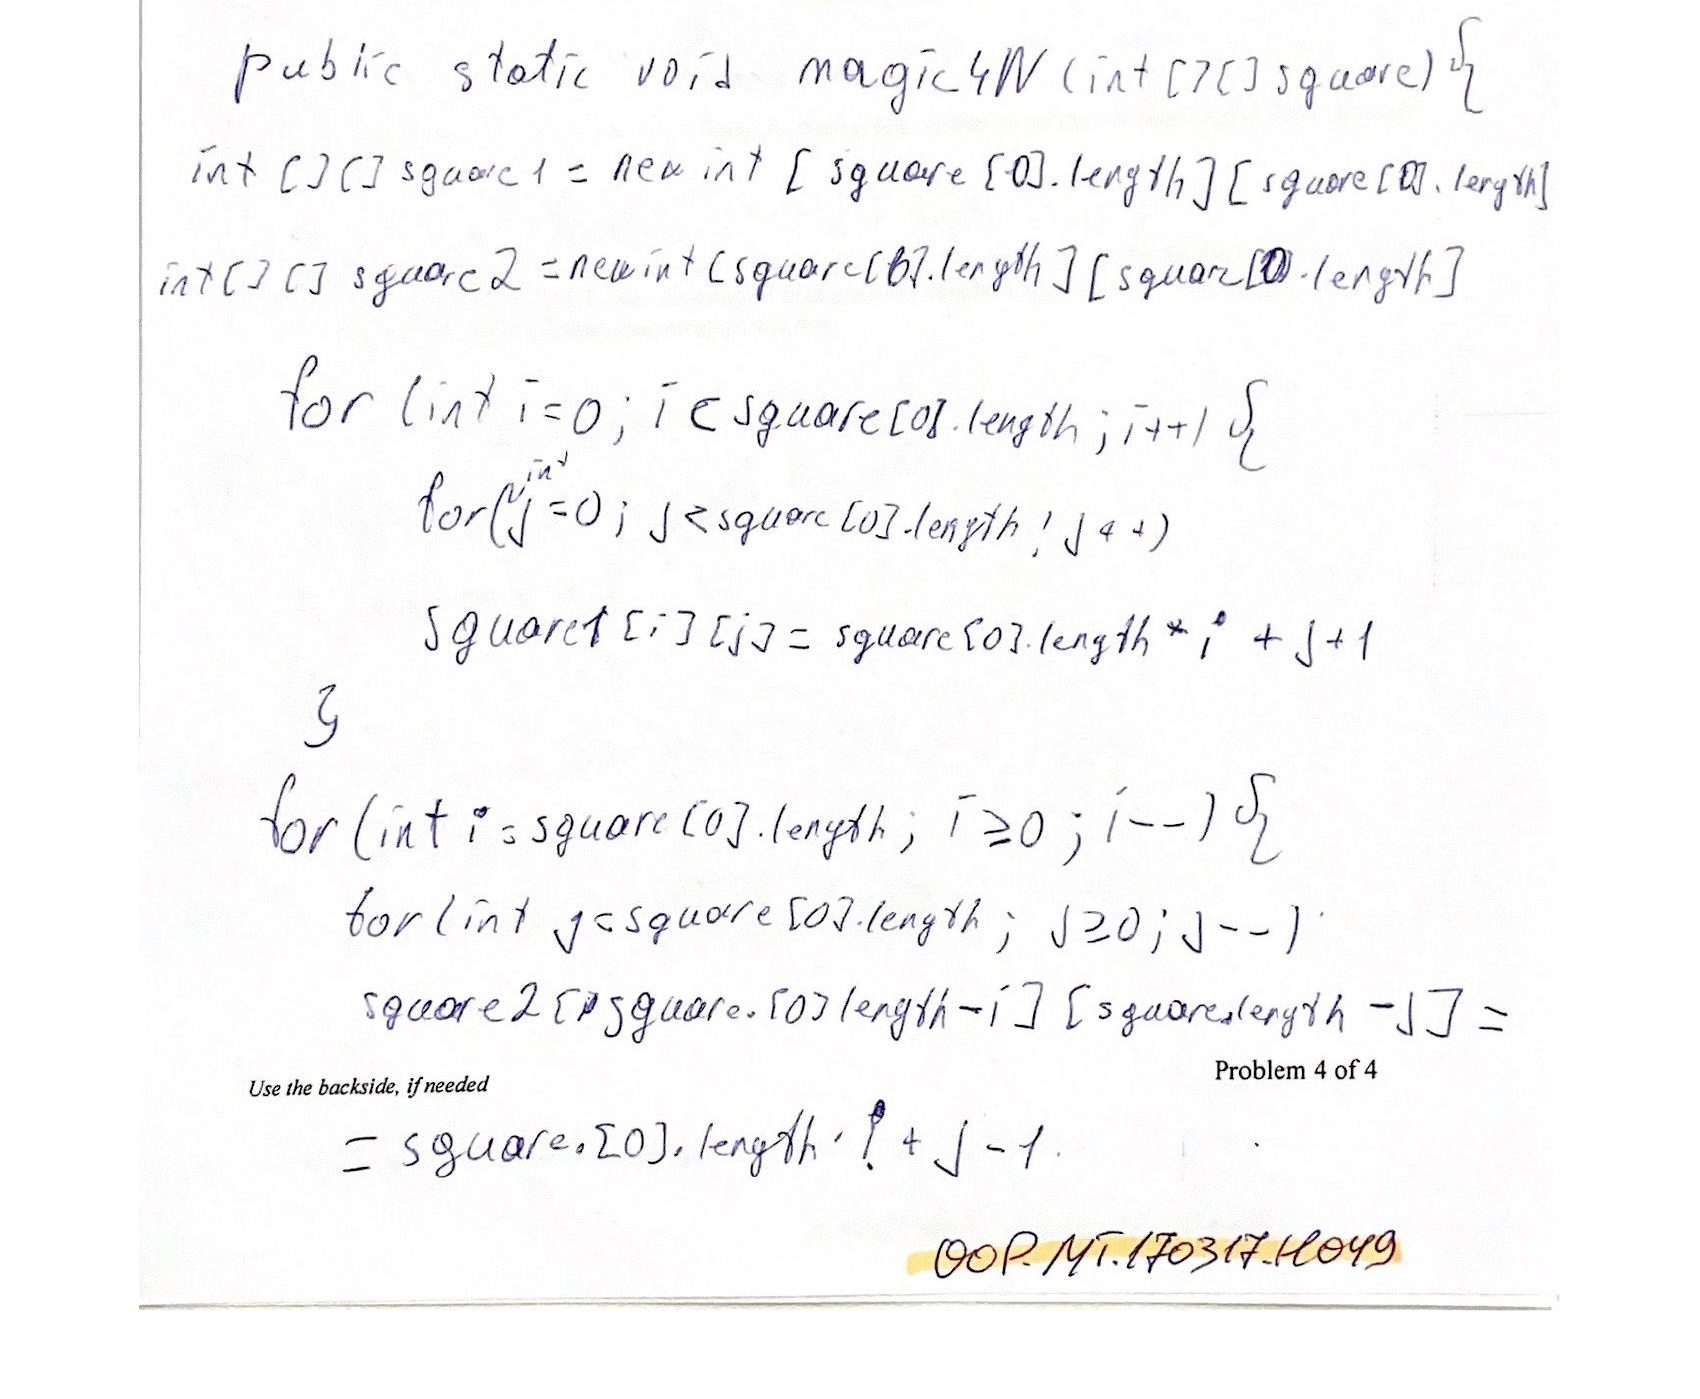 public static void magic4N (int [][] square) {
int [][] square1 = new int [ square [0].length] [ square [0]. length]
int [][] square2 = new int [square[0].length] [square[0].length]
for (int i=0; i < square[0].length; i++) {
for(int j=0; j<square[0].length; j++)
square1 [i] [j] = square[0].length * i + j+1
}
for (int i = square[0].length; i≥0; i--) {
for (int j=square[0].length; j≥0; j--)
square2 [square.[0]length-i] [square.length -j] =
Use the backside, if needed
Problem 4 of 4
= square.[0].length · i + j - 1.
OOP.MT.170317.H049